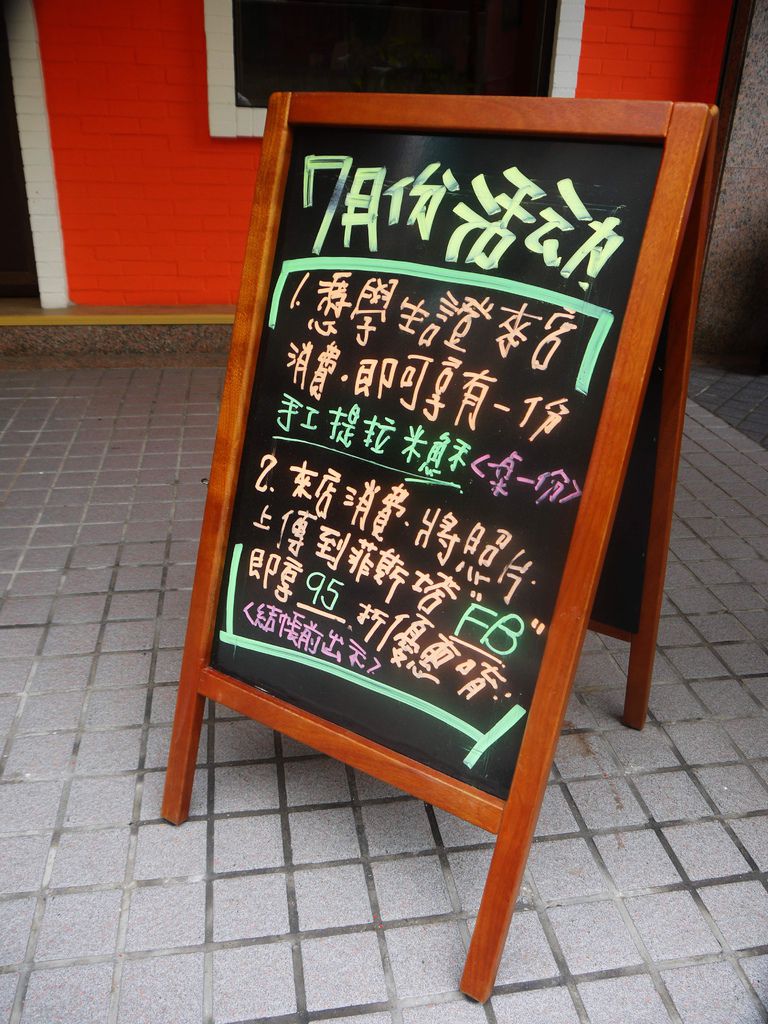 7月份活动
1.憑學生證來店
消費.即可享有一份
手工提拉米酥<桌一份>
2.來店消費.將照片.
上傳到菲斯塔"FB"
即享95折優惠唷.
<結帳前出示>